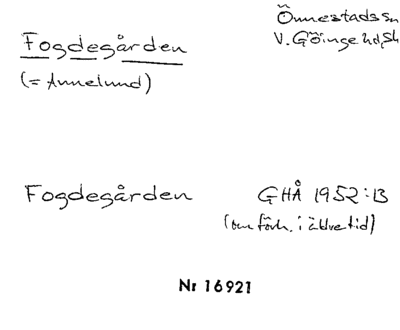 Önnestads sn
Fogdegården
V. Göinge hd, Sk
(= Annelund)
Fogdegården GHÅ 1952:13
(om förh. i äldre tid)
Nr 16921